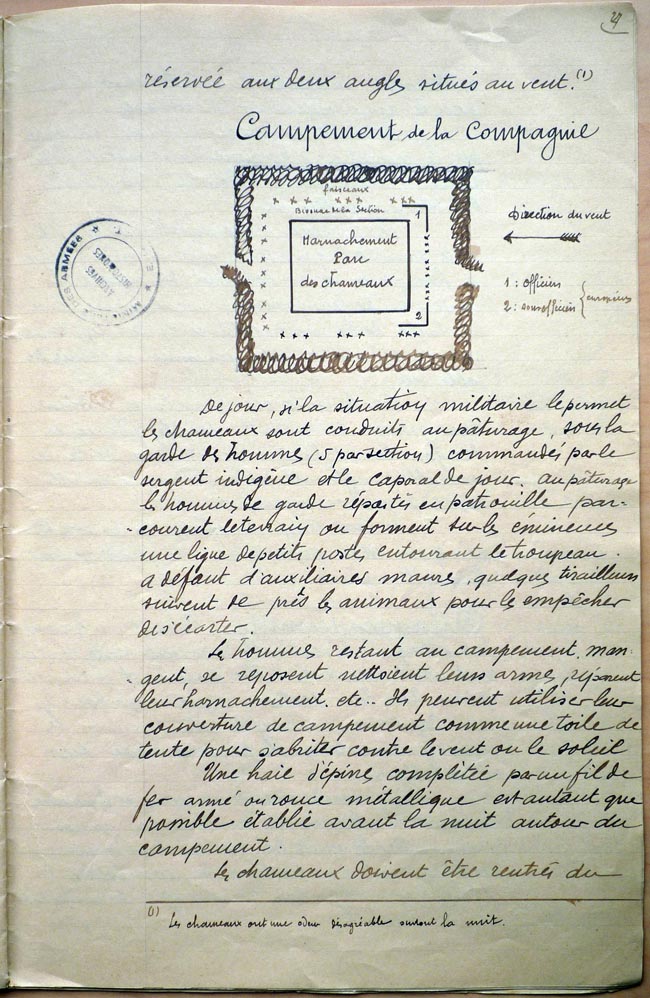 27
réservée aux deux angles situés au vent.(1)
Campement de la Compagnie
faisceaux
Bivouac de la Section
1
Harnachement
Parc
des chameaux
2
Direction du vent
1 : officiers
2 : sousofficiers
européens
ARCHIVES
HISTORIQUES
DES ARMÉES
De jour, si la situation militaire le permet
les chameaux sont conduits au pâturage, sous la
garde des hommes (5 par section) commandés par le
sergent indigène et le caporal de jour. au pâturage
les hommes de garde répartis en patrouille par-
-courent le terrain ou forment sur les éminences
une ligne de petits postes entourant le troupeau.
a défaut d'auxiliaires maures, quelques tirailleurs
suivent de près les animaux pour les empêcher
de s'écarter.
Les hommes restant au campement, man-
-gent, se reposent nettoient leurs armes, réparent
leur harnachement. etc.. Ils peuvent utiliser leur
couverture de campement comme une toile de
tente pour s'abriter contre le vent ou le soleil
Une haie d'épine complétée par un fil de
fer armé ou ronce métallique est autant que
possible établie avant la nuit autour du
campement.
Les chameaux doivent être rentrés du
(1) Les chameaux ont une odeur désagréable surtout la nuit.